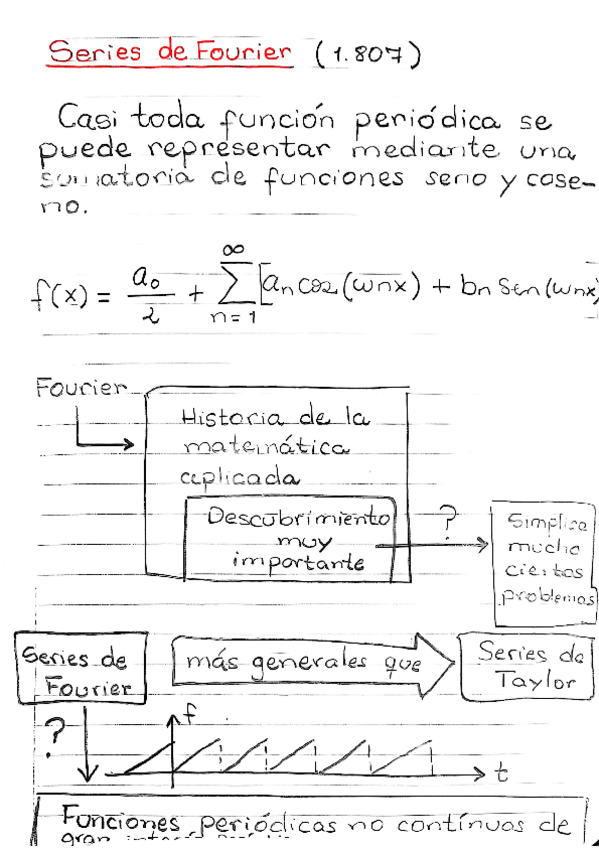 Series de Fourier (1.807)
Casi toda función periódica se
puede representar mediante una
sumatoria de funciones seno y cose-
no.
f(x) = a₀/2 + ∑ₙ₌₁^∞ [aₙ cos (ωnx) + bₙ Sen (ωnx)
Fourier
Historia de la
matemática
aplicada
Descubrimiento
muy
importante
?
Simplica
mucho
ciertos
problemas
Series de
Fourier
más generales que
Series de
Taylor
?
f
t
Funciones periódicas no contínuas de
gran